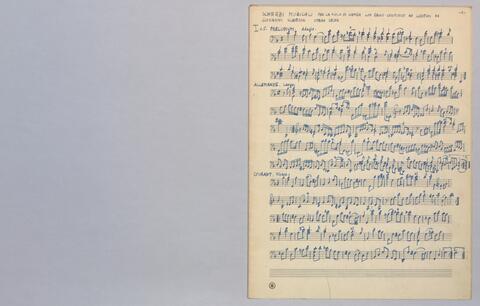 SCHERZI MUSICALI PER LA VIOLA DI GAMBA CON BASSO CONTINUO AD LIBITUM DA
-1-
GIOVANNI SCHENCK OPERA SESTA
I. PRELUDIUM, Adagio
ALLEMANDE, Largo
COURANT,